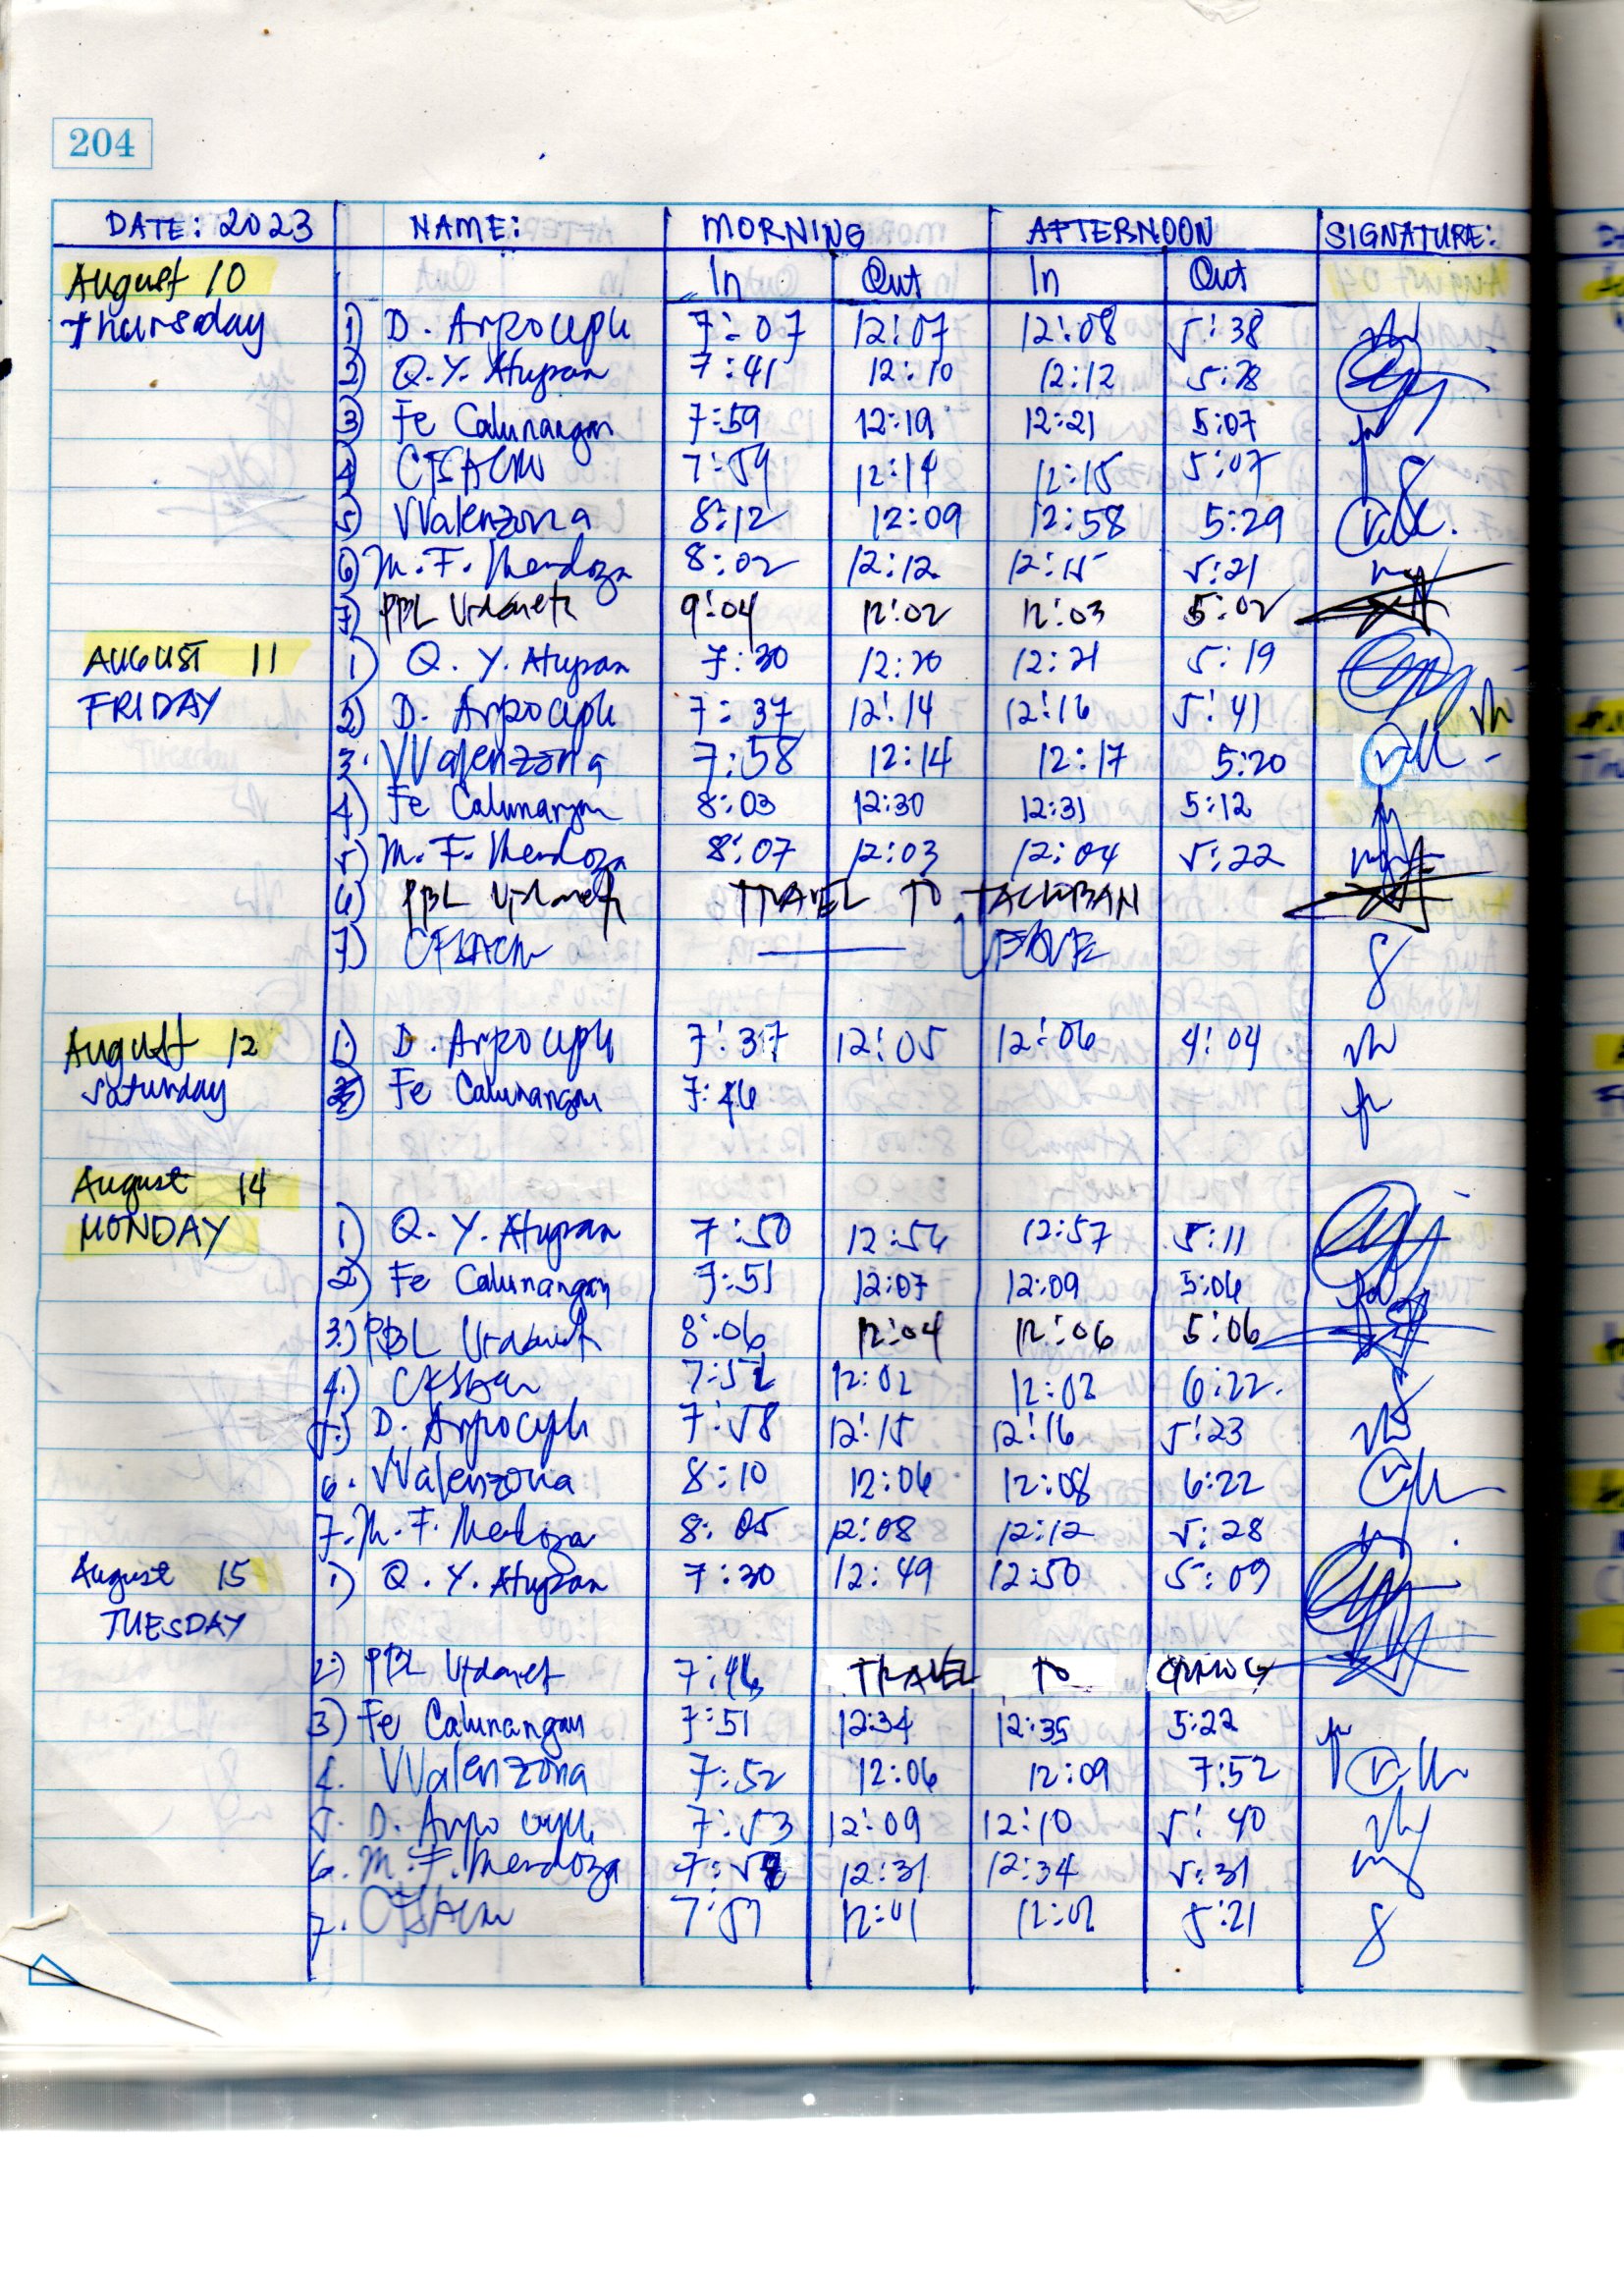 204
DATE: 2023 NAME: MORNING AFTERNOON SIGNATURE:
August 10 In Out In Out
Thursday 1) D. Arpoceph 7:07 12:07 12:08 5:38
2) Q.Y. Atupan 7:41 12:10 12:12 5:28
3) Fe Calunangan 7:59 12:19 12:21 5:07
4) 7:59 12:14 12:15 5:07
5) VValenzona 8:12 12:09 12:58 5:29
6) M.F. Mendoza 8:02 12:12 12:15 5:21
7) PBL 9:04 12:02 12:03 5:02
AUGUST 11 1) Q. Y. Atupan 7:30 12:20 12:21 5:19
FRIDAY 2) D. Arpoceph 7:37 12:14 12:16 5:41
3. VValenzona 7:58 12:14 12:17 5:20
4) Fe Calunangan 8:03 12:30 12:31 5:12
5) M. F. Mendoza 8:07 12:03 12:04 5:22
6) PBL TRAVEL TO TACLOBAN
7) LEAVE
August 12 1) D. Arpoceph 7:37 12:05 12:06 4:04
Saturday 2) Fe Calunangan 7:46
August 14
MONDAY 1) Q. Y. Atupan 7:50 12:56 12:57 5:11
2) Fe Calunangan 7:51 12:07 12:09 5:06
3.) PBL 8:06 12:04 12:06 5:06
4.) 7:52 12:02 12:02 6:22.
5.) D. Arpoceph 7:58 12:15 12:16 5:23
6. VValenzona 8:10 12:06 12:08 6:22
7. M. F. Mendoza 8:05 12:08 12:12 5:28
August 15 1) Q. Y. Atupan 7:30 12:49 12:50 5:09
TUESDAY
2) PBL 7:46 TRAVEL TO ORMOC
3) Fe Calunangan 7:51 12:34 12:35 5:22
4. VValenzona 7:52 12:06 12:09 7:52
5. D. Arpoceph 7:53 12:09 12:10 5:40
6. M. F. Mendoza 12:31 12:34 5:31
7. 7:57 12:01 12:02 5:21